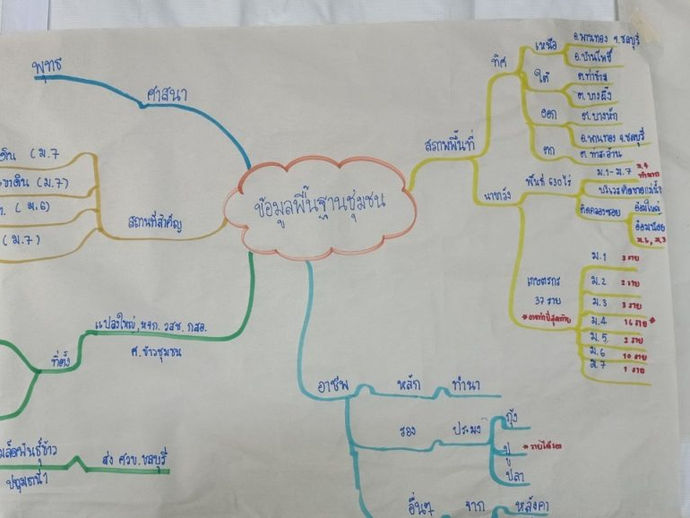 ข้อมูลพื้นฐานชุมชน
พุทธ
ศาสนา
สถานที่สำคัญ
(ม.7
(ม.7)
(ม.6)
(ม.7)
ที่ตั้ง
แปลงใหญ่, หจก. วสช. กสอ.
ศ. ข้าวชุมชน
เมล็ดพันธุ์ข้าว
ปทุมธานี 1
ส่ง ศวข. ชลบุรี
สภาพพื้นที่
ทิศ
เหนือ
อ.พานทอง จ.ชลบุรี
อ.บ้านโพธิ์
ใต้
ต.ท่าข้าม
ออก
ต.บางหัก
อ.พานทอง จ.ชลบุรี
ตก
ต.ท่าสะอ้าน
พื้นที่ 630 ไร่
ม.1-ม.7
ม.4
ทำมาก
ติดคลองซอย
อ้อมใหญ่
อ้อมน้อย
เกษตรกร
37 ราย
ม.1 3 ราย
ม.2 2 ราย
ม.3 3 ราย
ม.4 16 ราย *
ม.5 2 ราย
ม.6 10 ราย
ม.7 1 ราย
อาชีพ
หลัก
ทำนา
รอง
ประมง
กุ้ง
ปู
* รายได้รอง
ปลา
อื่นๆ
จาก
หลังคา